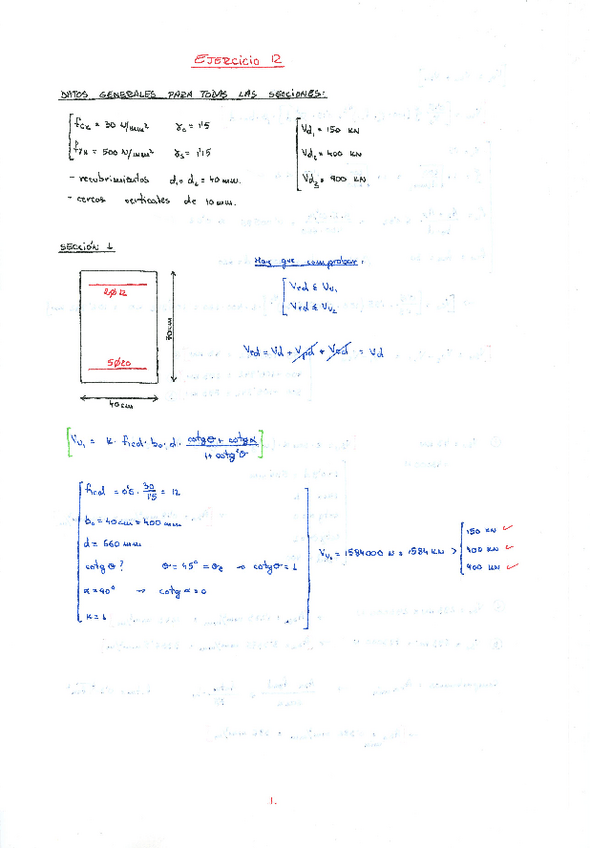 EJERCICIO 12
DATOS GENERALES PARA TODAS LAS SECCIONES:
fck = 30 N/mm² γc = 1'5
fyk = 500 N/mm² γs = 1'15
- recubrimientos d1 = d2 = 40 mm.
- cercos verticales de 10 mm.
Vd1 = 150 KN
Vd2 = 400 KN
Vd3 = 900 KN
SECCIÓN 1
2Ø12
5Ø20
70cm
40cm
Hay que comprobar:
Vrd ≤ Vu1
Vrd ≤ Vu2
Vrd = Vd + Vpd + Vcd = Vd
Vu1 = K · f1cd · b0 · d · (cotgθ + cotgα) / (1 + cotg²θ)
f1cd = 0'6 · 30/1'5 = 12
b0 = 40cm = 400 mm
d = 660 mm
cotgθ? θ = 45° = θe → cotgθ = 1
α = 90° → cotgα = 0
K = 1
Vu1 = 1584000 N = 1584 KN > 150 KN ✓
400 KN ✓
900 KN ✓
1.